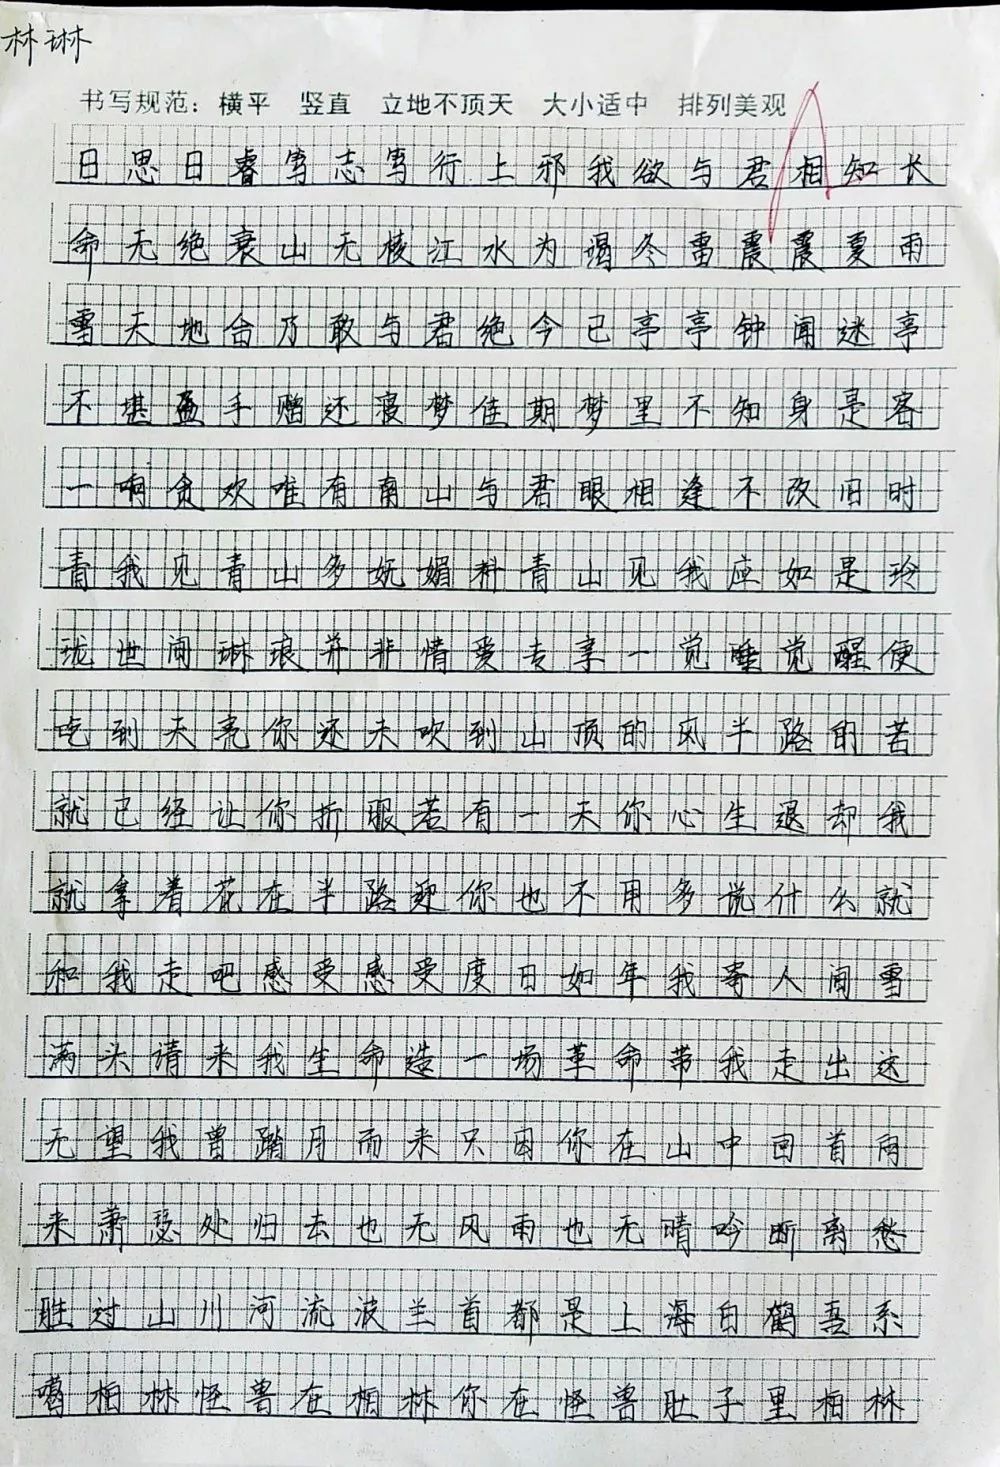 林琳
书写规范：横平 竖直 立地不顶天 大小适中 排列美观
日思日睿笃志笃行上邪我欲与君相知长
命无绝衰山无棱江水为竭冬雷震震夏雨
雪天地合乃敢与君绝今已亭亭钟闻迷亭
不堪盈手赠还寝梦佳期梦里不知身是客
一晌贪欢唯有南山与君眼相逢不改旧时
青我见青山多妩媚料青山见我应如是玲
珑世间琳琅并非情爱专享一觉睡觉醒便
吃到天亮你还未吹到山顶的风半路的苦
就已经让你折服若有一天你心生退却我
就拿着花在半路迎你也不用多说什么就
和我走吧感受感受度日如年我寄人间雪
满头请来我生命造一场革命带我走出这
无望我曾踏月而来只因你在山中回首向
来萧瑟处归去也无风雨也无晴吟断离愁
胜过山川河流波兰首都是上海白鹤吾系
噶柏林怪兽在柏林你在怪兽肚子里柏林